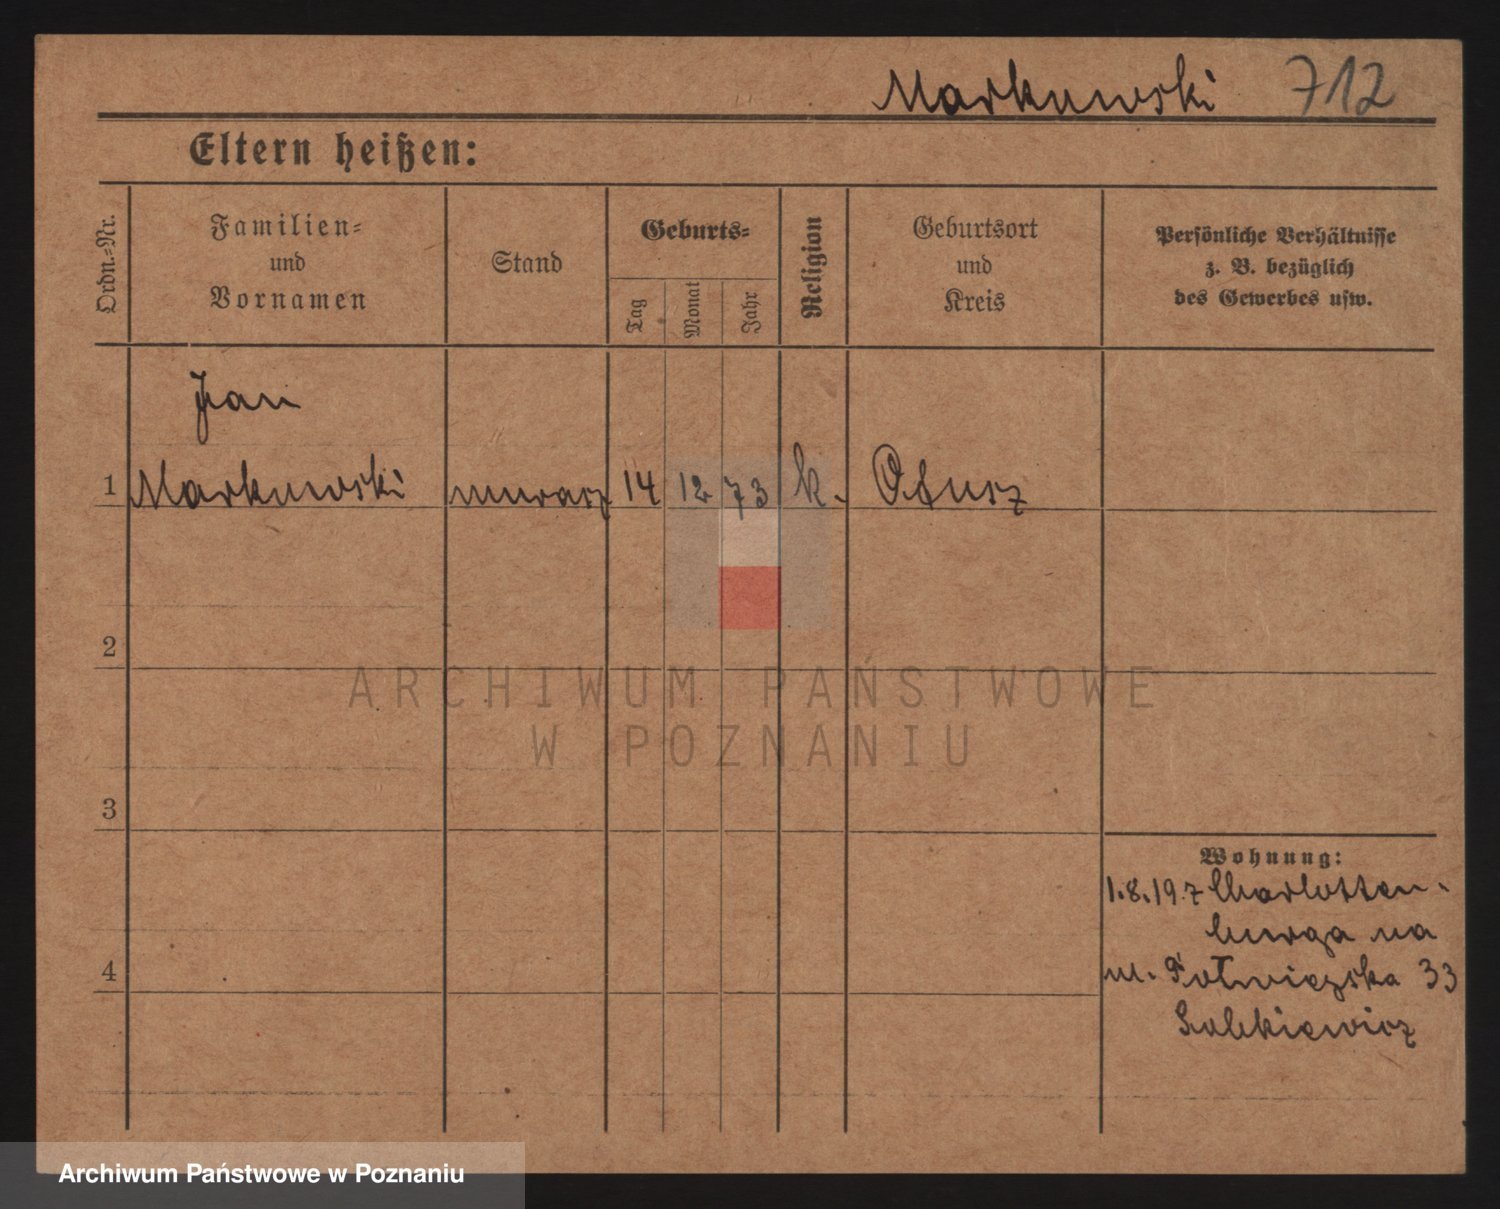 Markowski 712
Eltern heißen:
Ordn.-Nr.
Familien-
und
Vornamen
Stand
Geburts-
Tag
Monat
Jahr
Religion
Geburtsort
und
Kreis
Persönliche Verhältnisse
z. B. bezüglich
des Gewerbes usw.
Jan
1 Markowski murarz 14 12 73 k.
2
3
4
Wohnung:
1.8.19.7 Charlotten-
burga na
ul. Półwiejska 33
ARCHIWUM PAŃSTWOWE
W POZNANIU
Archiwum Państwowe w Poznaniu